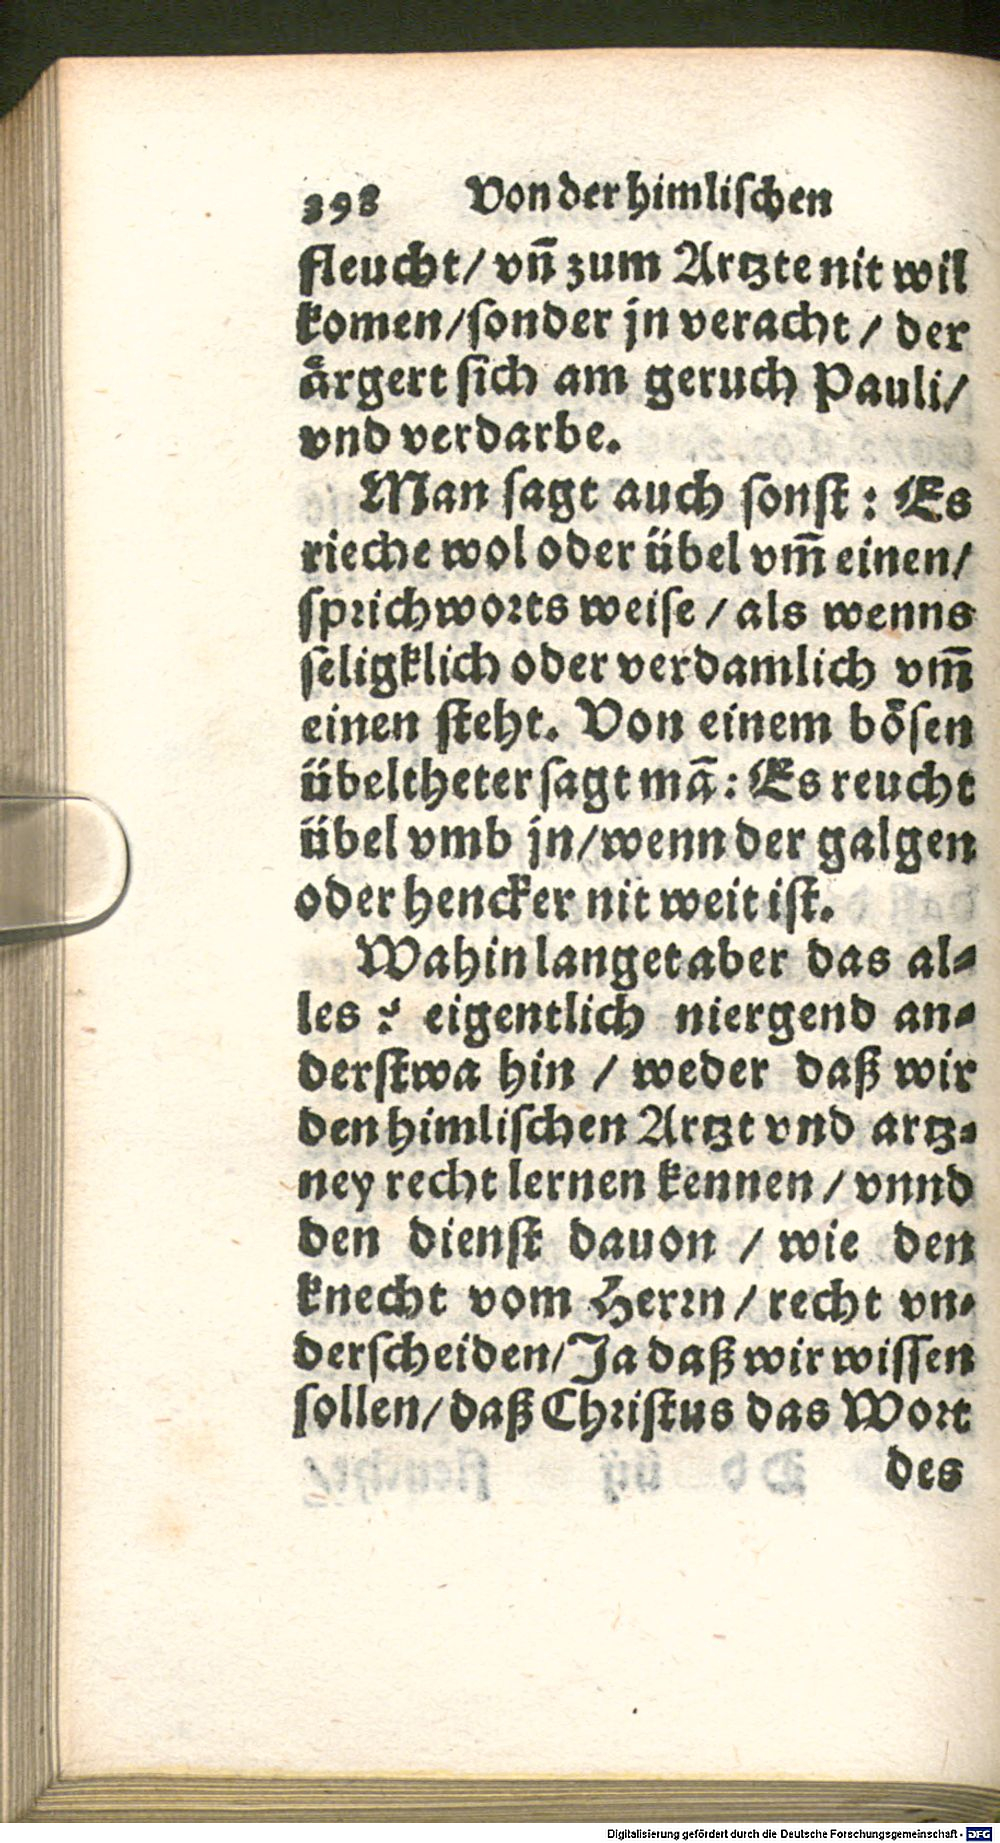 398 Von der himliſchen
fleucht/ vn̄ zum Artzte nit wil
komen/ ſonder jn veracht / der
aͤrgert ſich am geruch Pauli/
vnd verdarbe.
Man ſagt auch ſonſt : Es
rieche wol oder übel vm̄ einen/
ſprichworts weiſe / als wenns
ſeligklich oder verdamlich vm̄
einen ſteht. Von einem boͤſen
übeltheter ſagt mā : Es reucht
übel vmb jn/ wenn der galgen
oder hencker nit weit iſt.
Wahin langet aber das al⸗
les ? eigentlich niergend an⸗
derſtwa hin / weder daß wir
den himliſchen Artzt vnd artz⸗
ney recht lernen kennen / vnnd
den dienſt dauon / wie den
knecht vom Herrn / recht vn⸗
derſcheiden/ Ja daß wir wiſſen
ſollen/ daß Chriſtus das Wort
des
Digitalisierung gefördert durch die Deutsche Forschungsgemeinschaft - DFG